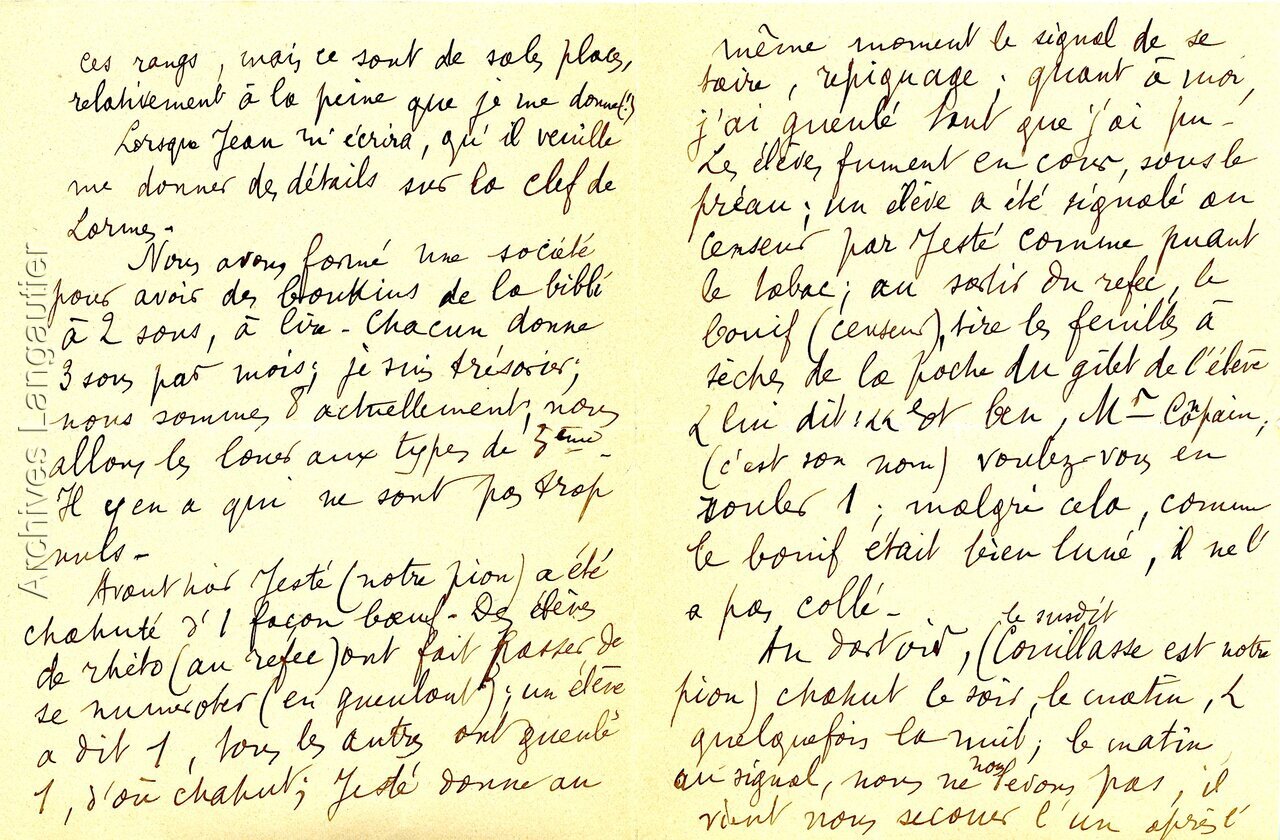 ces rangs, mais ce sont de sales places,
relativement à la peine que je me donne (!)
Lorsque Jean m'écrira, qu'il veuille
me donner des détails sur la clef de
Lormes -
Nous avons formé une société
pour avoir des boukins de la bibli
à 2 sous, à lire - Chacun donne
3 sous par mois; je suis trésorier;
nous sommes 8 actuellement, nous
allons les louer aux types de 3ème -
Il y en a qui ne sont pas trop
nuls -
Avant hier Jesté (notre pion) a été
chahuté d'1 façon boeuf - Des élèves
de rhéto (au refec) ont fait passer de
se numéroter (en gueulant); un élève
a dit 1, tous les autres ont gueulé
1, d'où chahut; Jesté donne au
même moment le signal de se
taire, repiquage; quant à moi,
j'ai gueulé tant que j'ai pu -
Les élèves fument en cour, sous le
préau; un élève a été signalé au
censeur par Jesté comme puant
le tabac; au sortir du refec, le
bouif (censeur), tire les feuilles à
sécher de la poche du gilet de l'élève
& lui dit: << et ben, Mr Copain,
(c'est son nom) voulez-vous en
rouler 1; malgré cela, comme
le bouif était bien luné, il ne l'
a pas collé -
le susdit
Au dortoir, (Couillasse est notre
pion) chahut le soir, le matin, &
quelquefois la nuit; le matin
au signal, nous ne nous levons pas, il
vient nous secouer l'un après l'